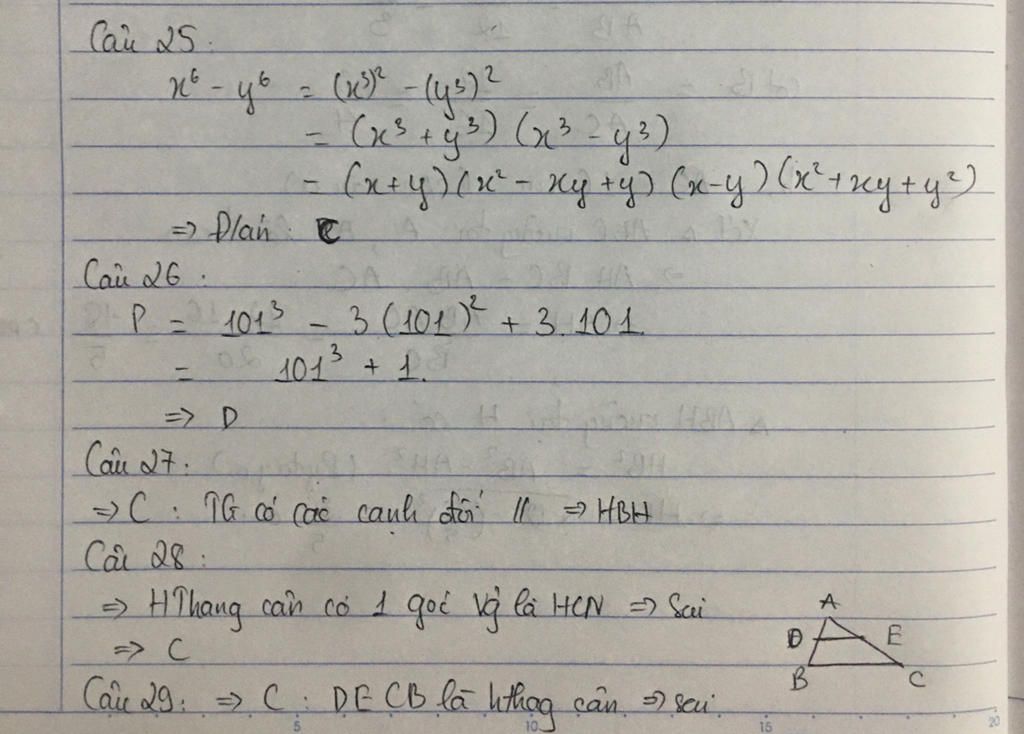 Câu 25:
x⁶ - y⁶ = (x³)² - (y³)²
= (x³ + y³) (x³ - y³)
= (x+y) (x² - xy + y) (x-y) (x² + xy + y²)
=> Đ/án: C
Câu 26:
P = 101³ - 3(101)² + 3.101.
= 101³ + 1.
=> D
Câu 27:
=> C: TG có các cạnh đối // => HBH
Câu 28:
=> HThang cân có 1 góc Vg là HCN => Sai
=> C
A
D E
B C
Câu 29: => C: DECB là hthag cân => sai